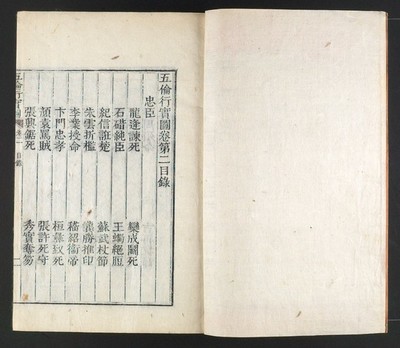 五倫行實圖卷第二目錄
忠臣
龍逄諫死
欒成鬪死
石碏純臣
王蠋絶脰
紀信誑楚
蘇武杖節
朱雲折檻
龔勝推印
李業授命
嵇紹衛帝
卞門忠孝
桓彝致死
顔袁罵賊
張許死守
張興鋸死
秀實奪笏
五倫行實圖 卷二 目錄 一